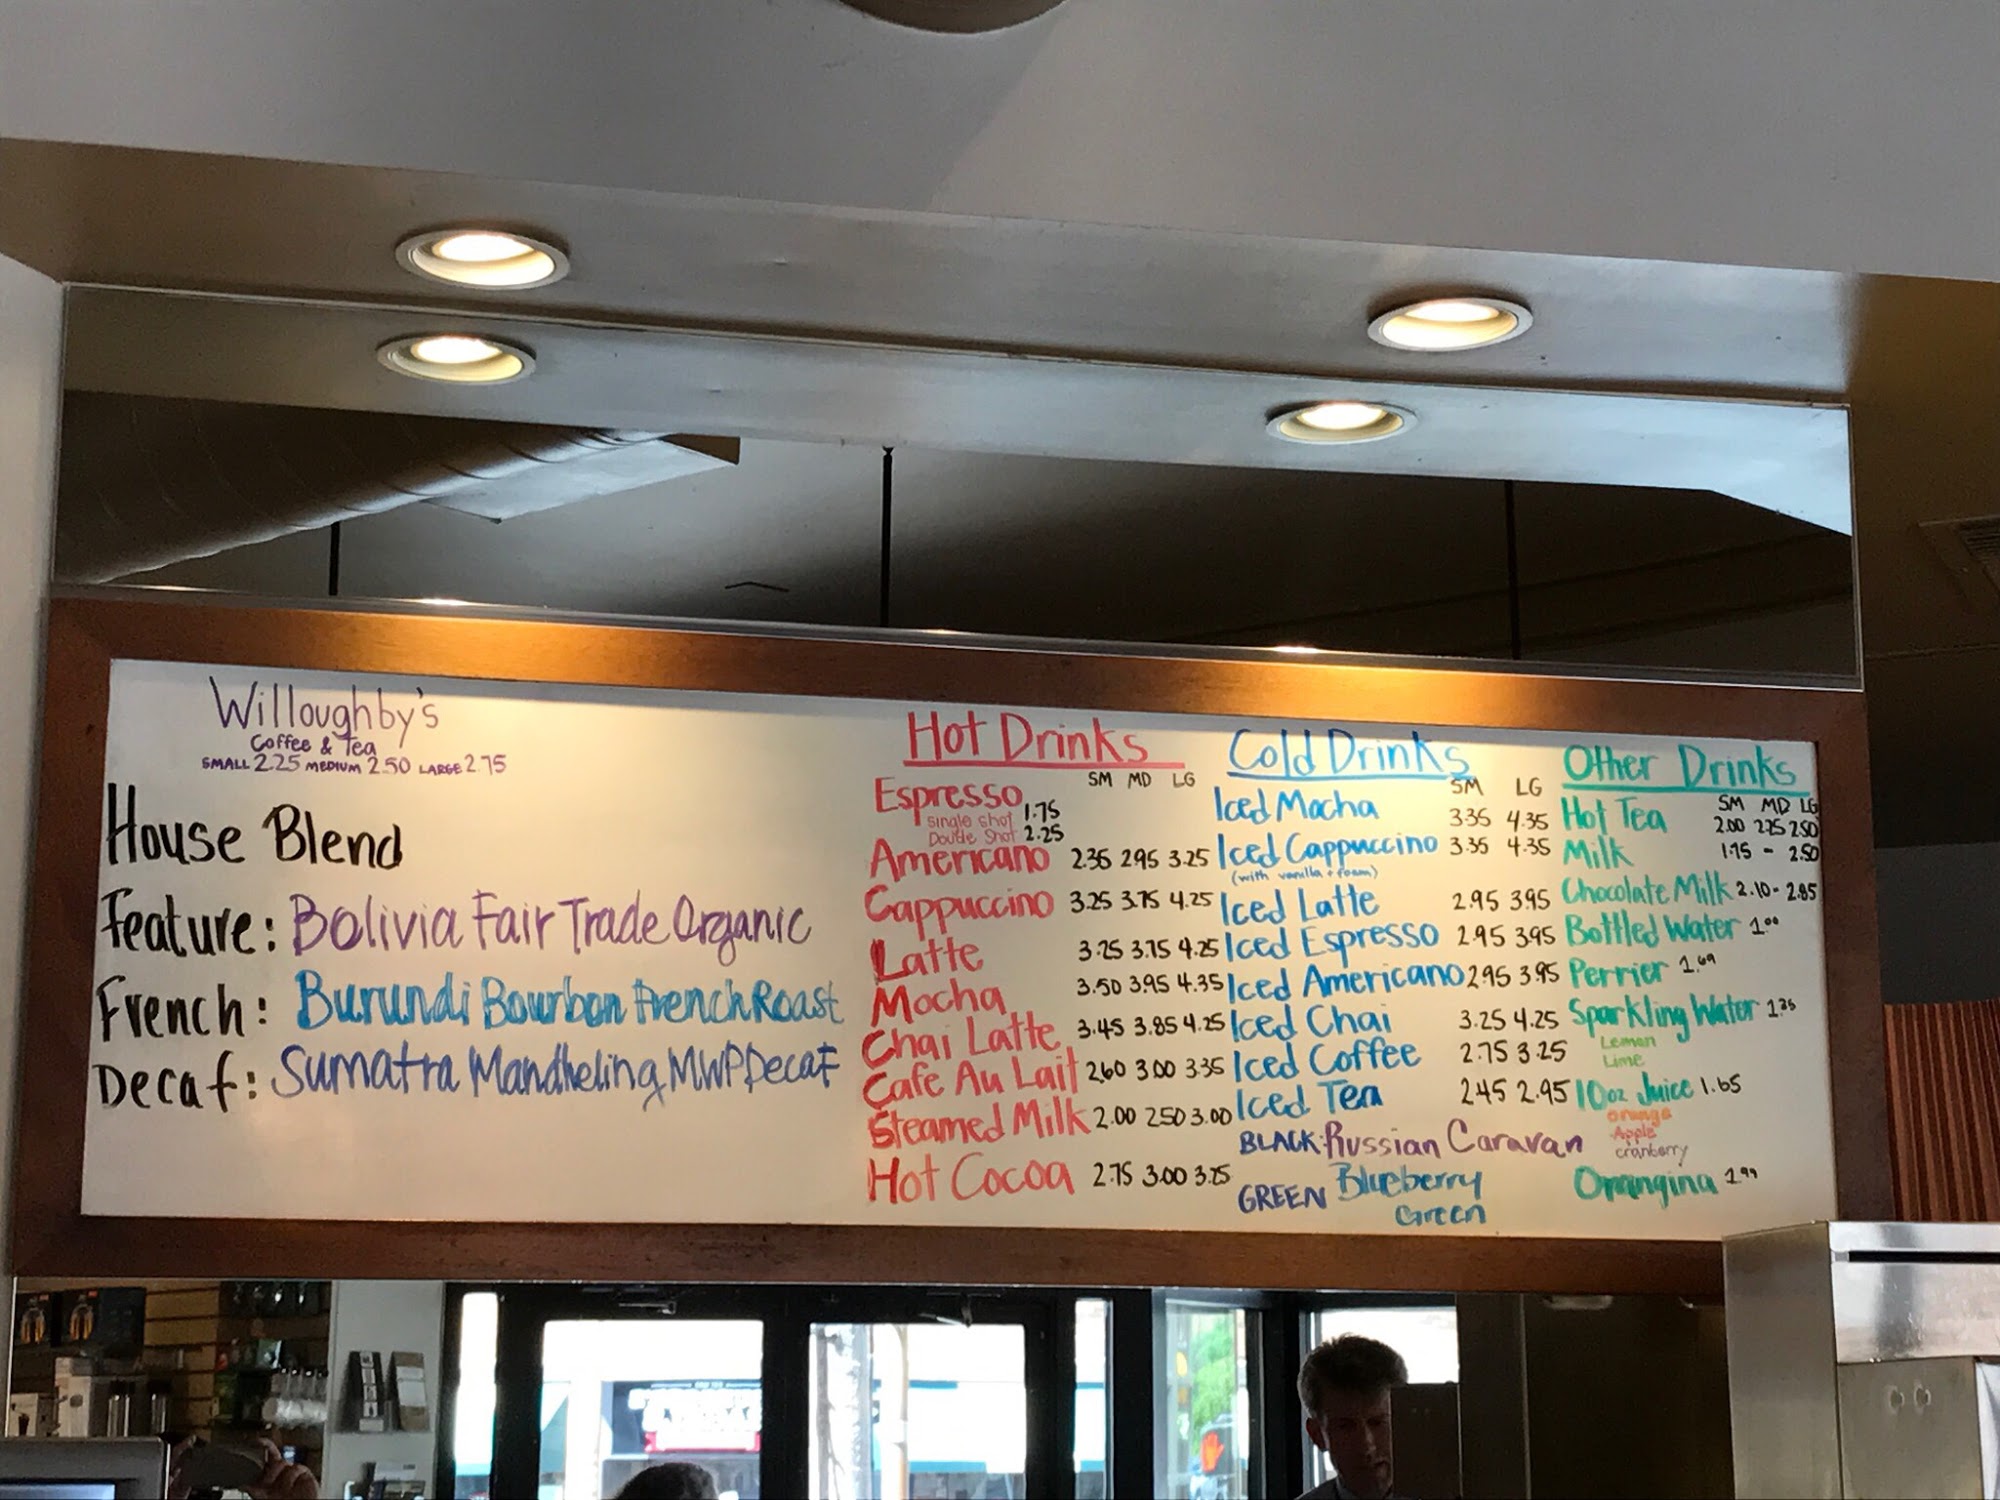 Willoughby's
Coffee & Tea
SMALL 2.25 MEDIUM 2.50 LARGE 2.75
House Blend
Feature: Bolivia Fair Trade Organic
French: Burundi Bourbon French Roast
Decaf: Sumatra Mandheling MWP Decaf
Hot Drinks
SM MD LG
Espresso
Single Shot 1.75
Double Shot 2.25
Americano 2.35 2.95 3.25
Cappuccino 3.25 3.75 4.25
Latte 3.25 3.75 4.25
Mocha 3.50 3.95 4.35
Chai Latte 3.45 3.85 4.25
Cafe Au Lait 2.60 3.00 3.35
Steamed Milk 2.00 2.50 3.00
Hot Cocoa 2.75 3.00 3.25
Cold Drinks
SM LG
Iced Mocha 3.35 4.35
Iced Cappuccino 3.35 4.35
(with vanilla + foam)
Iced Latte 2.95 3.95
Iced Espresso 2.95 3.95
Iced Americano 2.95 3.95
Iced Chai 3.25 4.25
Iced Coffee 2.75 3.25
Iced Tea 2.45 2.95
BLACK: Russian Caravan
GREEN Blueberry
Green
Other Drinks
SM MD LG
Hot Tea 2.00 2.25 2.50
Milk 1.75 - 2.50
Chocolate Milk 2.10 - 2.85
Bottled Water 1.00
Perrier 1.69
Sparkling Water 1.35
Lemon
Lime
10oz Juice 1.65
Orange
Apple
cranberry
Orangina 1.99